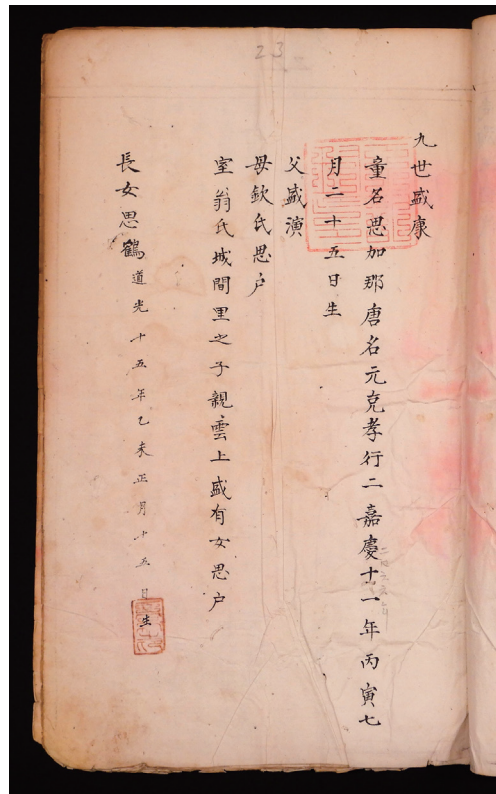 23
九世盛康
童名思加那唐名元克孝行二嘉慶十一年丙寅七
月二十五日生
父盛演
母欽氏思戶
室翁氏城間里之子親雲上盛有女思戶
長女思鶴道光十五年乙未正月十五日生